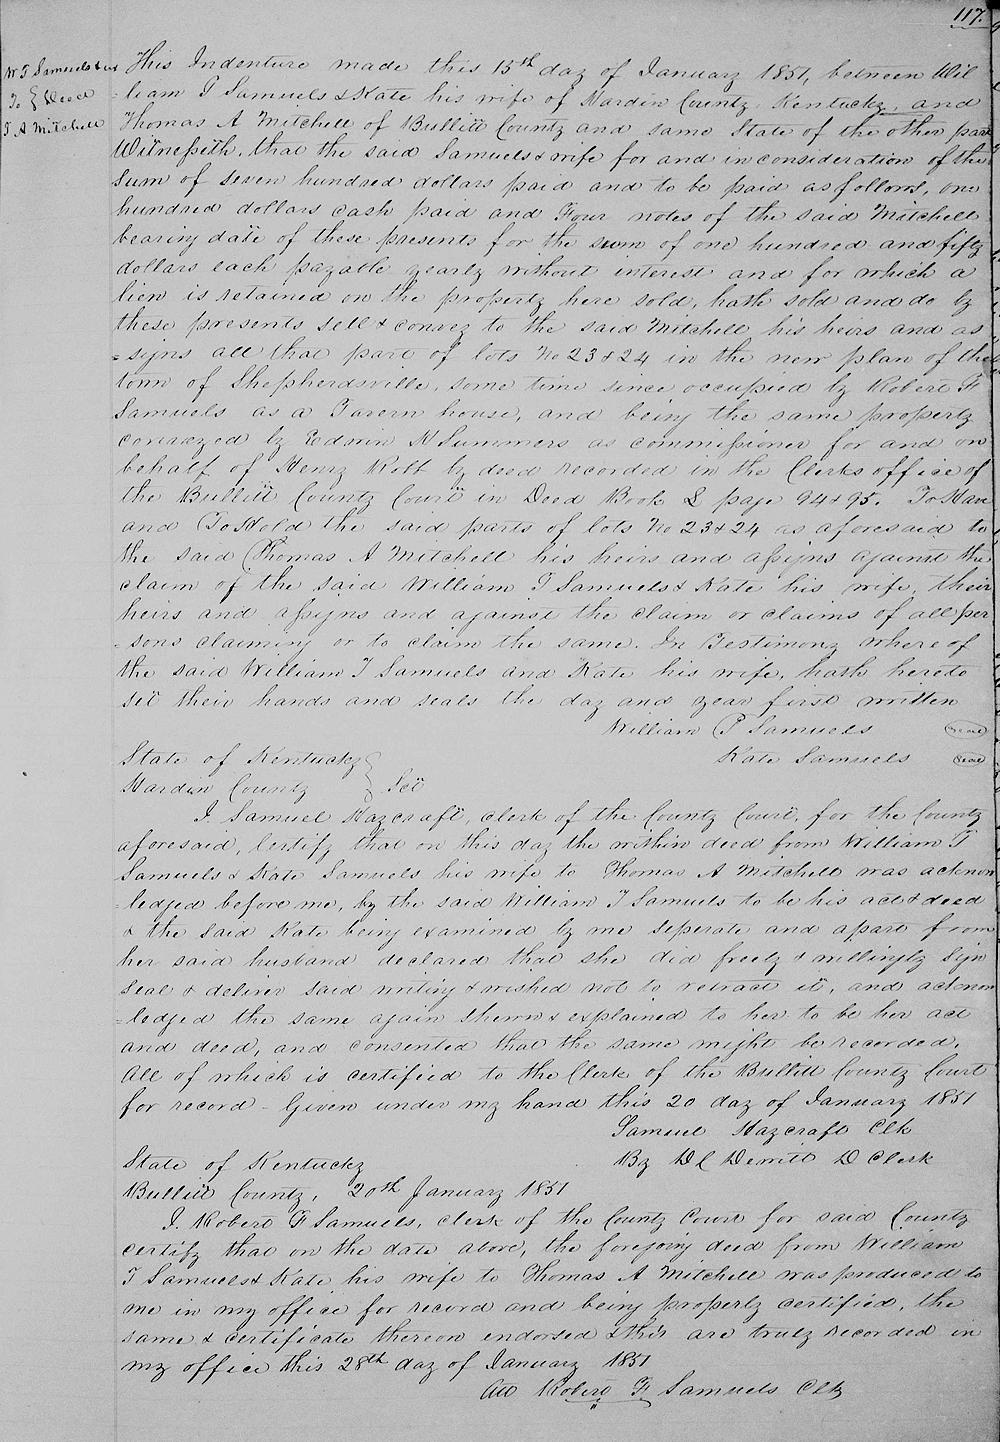 117.
W T Samuels & ux
To } Deed
T. A Mitchell
This Indenture made this 15th day of January 1851, between Wil
-liam T Samuels & Kate his wife of Hardin County Kentucky, and
Thomas A Mitchell of Bullitt County and same State of the other part
Witnesseth, that the said Samuels & wife for and in consideration of the
Sum of seven hundred dollars paid and to be paid as follows, one
hundred dollars cash paid and Four notes of the said Mitchell
bearing date of these presents for the sum of one hundred and fifty
dollars each payable yearly without interest and for which a
lien is retained on the property here sold, hath sold and do by
these presents sell & convey to the said Mitchell his heirs and as
=signs all that part of lots No 23 & 24 in the new plan of the
town of Shepherdsville, some time since occupied by Robert F
Samuels as a Tavern house, and being the same property
conveyed by Edwin H Summers as commissioner for and on
behalf of Henry Kolb by deed recorded in the Clerks office of
the Bullitt County Court in Deed Book L page 94 & 95. To Have
and To Hold the said parts of lots No 23 & 24 as aforesaid to
the said Thomas A Mitchell his heirs and assigns against the
claim of the said William T Samuels & Kate his wife, their
heirs and assigns and against the claim or claims of all per
-sons claiming or to claim the same. In Testimony where of
the said William T Samuels and Kate his wife, hath hereto
set their hands and seals the day and year first written
William T Samuels Seal
Kate Samuels Seal
State of Kentucky }
Hardin County } Sct
I. Samuel Haycraft, clerk of the County Court, for the County
aforesaid, Certify that on this day the within deed from William T
Samuels & Kate Samuels his wife to Thomas A Mitchell was acknow
-ledged before me, by the said William T Samuels to be his act & deed
& the said Kate being examined by me seperate and apart from
her said husband declared that she did freely & willingly sign
seal & deliver said writing & wished not to retract it, and acknow
=ledged the same again shewn & explained to her to be her act
and deed, and consented that the same might be recorded,
all of which is certified to the Clerk of the Bullitt County Court
for record - Given under my hand this 20 day of January 1851
Samuel Haycraft Clk
By D C Dewitt D Clerk
State of Kentucky
Bullitt County, 20th January 1851
I. Robert F Samuels, clerk of the County Court for said County
certify that on the date above, the foregoing deed from William
T Samuels & Kate his wife to Thomas A Mitchell was produced to
me in my office for record and being properly certified, the
same & certificate thereon endorsed & this are truly recorded in
my office this 28th day of January 1851
Att Robert F Samuels Clk